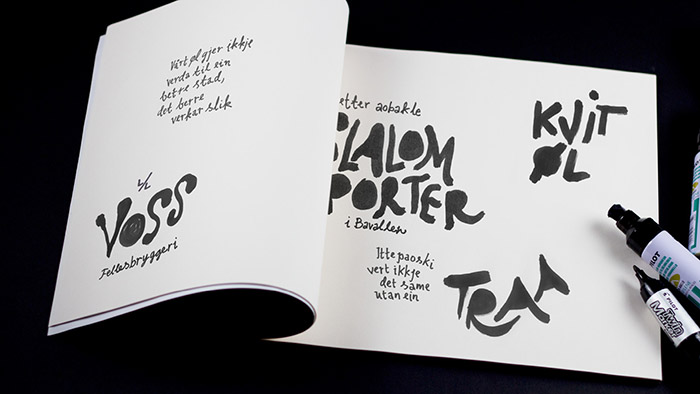 Vårt øl gjer ikkje
verda til ein
betre stad,
det berre
verkar slik
VOSS
Fellesbryggeri
etter aobakle
SLALOM
PORTER
i Bavallen
Ittepaoski
vert ikkje
det same
utan ein
TRAA
KVIT
ØL
PILOT
Twin
Marker